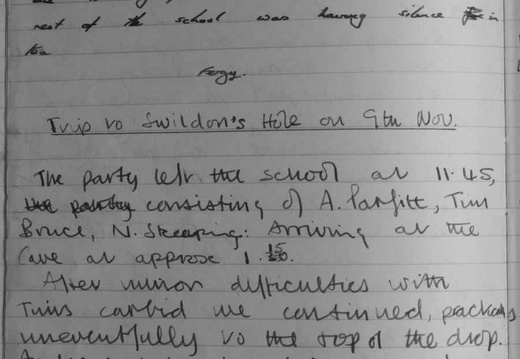 rest of the school was having silence in
the
Fergy.
Trip to Swildon's Hole on 9th Nov.
The party left the school at 11.45,
the party consisting of A. Parfitt, Tim
Bruce, N. Skeeping: Arriving at the
Cave at approx 1.15.
After minor difficulties with
Tims carbid we continued, practicaly
uneventfully to the top of the drop.